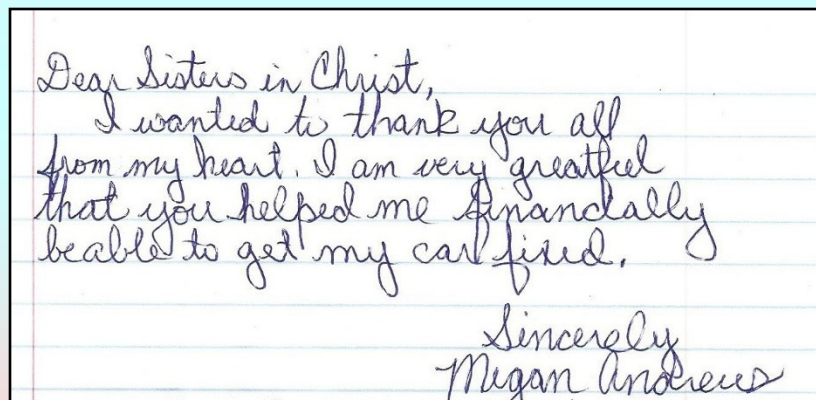 Dear Sisters in Christ,
I wanted to thank you all
from my heart. I am very greatful
that you helped me financially
beable to get my car fixed.
Sincerely
Megan Andrews